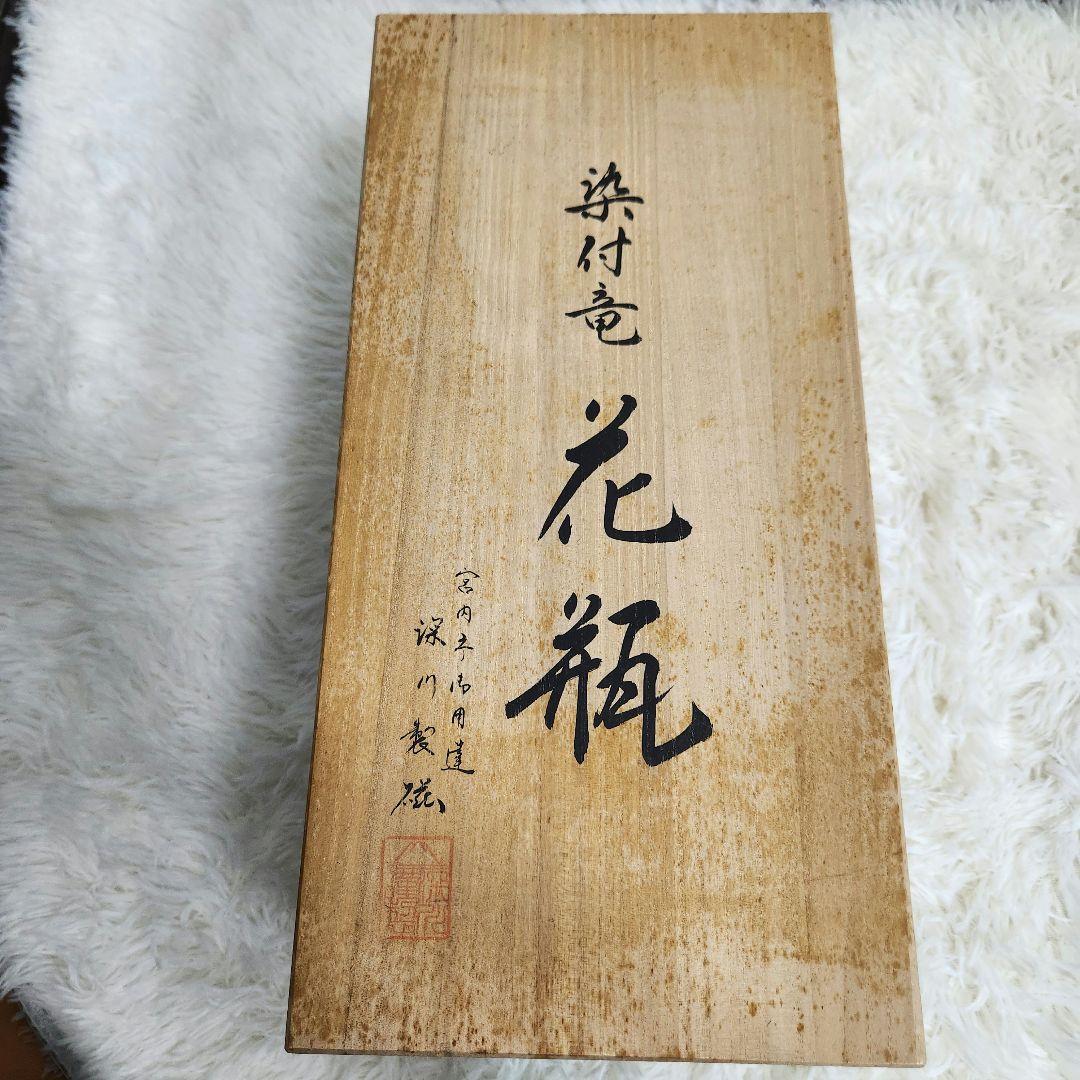 染付竜
花瓶
宮内庁御用達
深川製磁